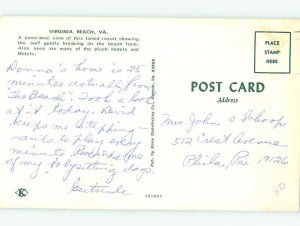 VIRGINIA BEACH, VA.
A panoramic view of this famed resort showing
the surf gently breaking on the beach front.
Also seen are many of the plush Hotels and
Motels.
Donna's home is 25
minutes actually from
"The Beach". Took a look
at it today. David
keeps me stepping
wants to play every
minute. one
of my babysitting days.
Gertrude
PLACE
STAMP
HERE
POST CARD
Address
Mrs. John C Schoop
512 Crest Avenue
Phila, Pa 19126
K
121437